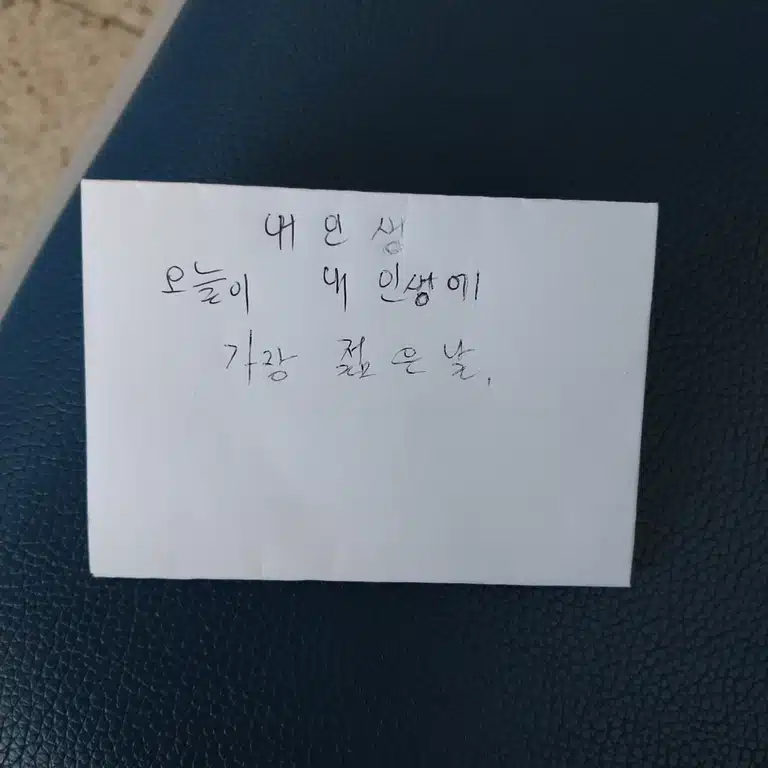 내 인 생
오늘이 내 인생에
가장 젊은 날.